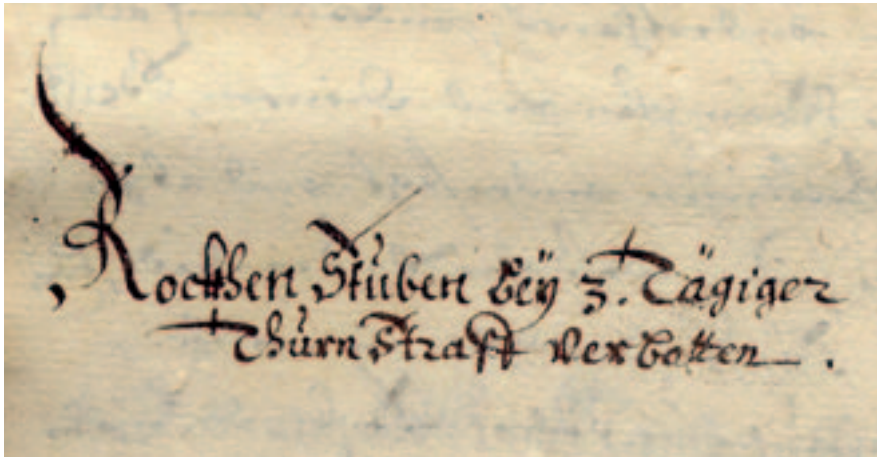 Rockhen Stuben beÿ 3. Tägiger
Thurn Straff verbotten.